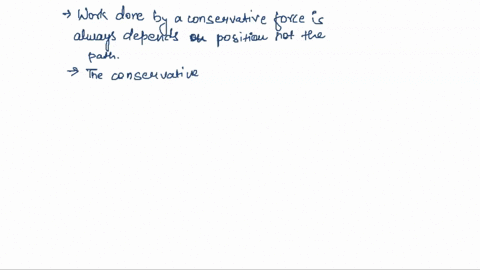 → Work done by a conservative force is
always depends on position not the
path.
→ The conservative